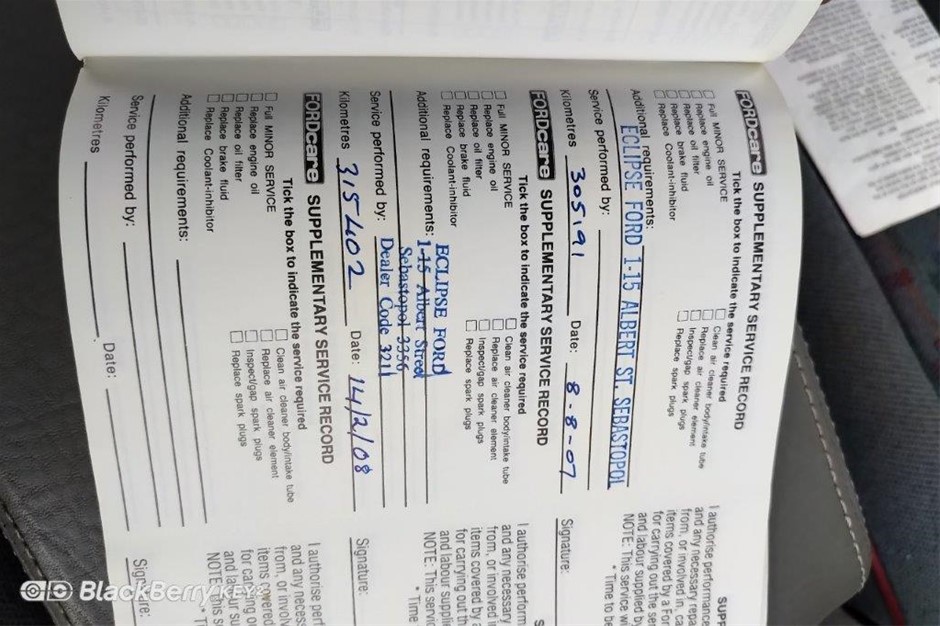 FORDcare SUPPLEMENTARY SERVICE RECORD
Tick the box to indicate the service required
Full MINOR SERVICE
Replace engine oil
Replace oil filter
Replace brake fluid
Replace Coolant-inhibitor
Clean air cleaner body/intake tube
Replace air cleaner element
Inspect/gap spark plugs
Replace spark plugs
Additional requirements:
ECLIPSE FORD 1-15 ALBERT ST. SEBASTOPOL
Service performed by:
Kilometres 305191 Date: 8-8-07
FORDcare SUPPLEMENTARY SERVICE RECORD
Tick the box to indicate the service required
Full MINOR SERVICE
Replace engine oil
Replace oil filter
Replace brake fluid
Replace Coolant-inhibitor
Clean air cleaner body/intake tube
Replace air cleaner element
Inspect/gap spark plugs
Replace spark plugs
Additional requirements:
ECLIPSE FORD
1-15 Albert Street
Sebastopol 3356
Service performed by: Dealer Code 3211
Kilometres 315402 Date: 14/2/08
FORDcare SUPPLEMENTARY SERVICE RECORD
Tick the box to indicate the service required
Full MINOR SERVICE
Replace engine oil
Replace oil filter
Replace brake fluid
Replace Coolant-inhibitor
Clean air cleaner body/intake tube
Replace air cleaner element
Inspect/gap spark plugs
Replace spark plugs
Additional requirements:
Service performed by:
Kilometres Date:
SUPP
I authorise performance
and any necessary repa
from, or involved in, ca
items covered by a For
for carrying out the ser
and labour supplied by
NOTE: This service w
* Time to be
Signature:
S
I authorise perform
and any necessary
from, or involved i
items covered by a
for carrying out th
and labour suppli
NOTE: This servic
* Time
Signature:
I authorise perf
and any neces
from, or involv
items covered
for carrying o
and labour su
NOTE: This s
Signature:
BlackBerry KEY2